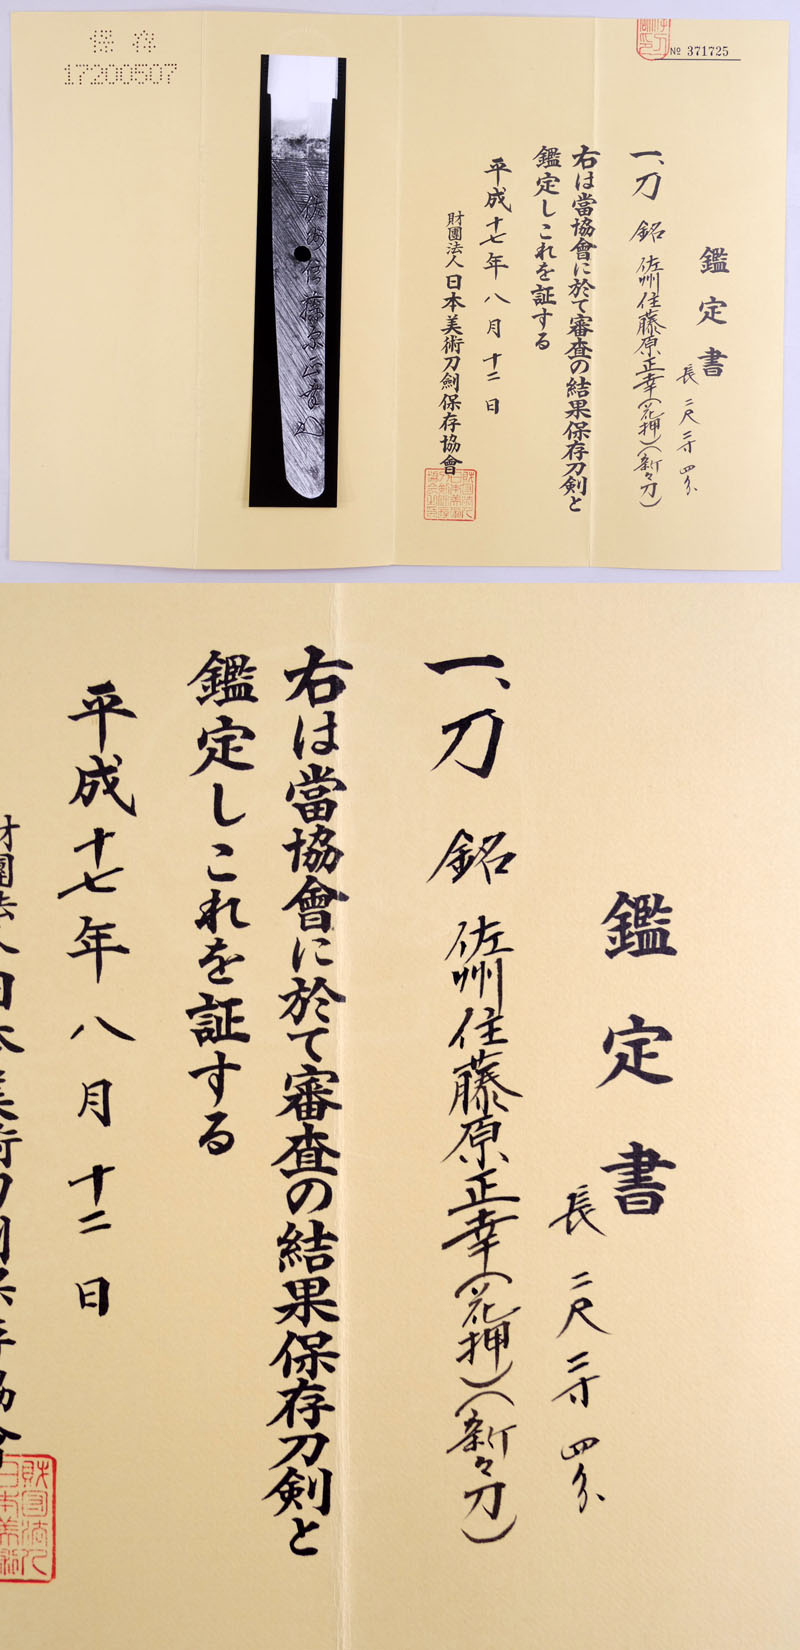 保存
17200507
№ 371725
鑑定書
長 二尺三寸四分
一、刀 銘 佐州住藤原正幸(花押)(新々刀)
右は當協會に於て審査の結果保存刀剣と
鑑定しこれを証する
平成十七年八月十二日
財團法人日本美術刀劍保存協會
鑑定書
長 二尺三寸四分
一、刀 銘 佐州住藤原正幸(花押)(新々刀)
右は當協會に於て審査の結果保存刀剣と
鑑定しこれを証する
平成十七年八月十二日
財團法人日本美術刀劍保存協會